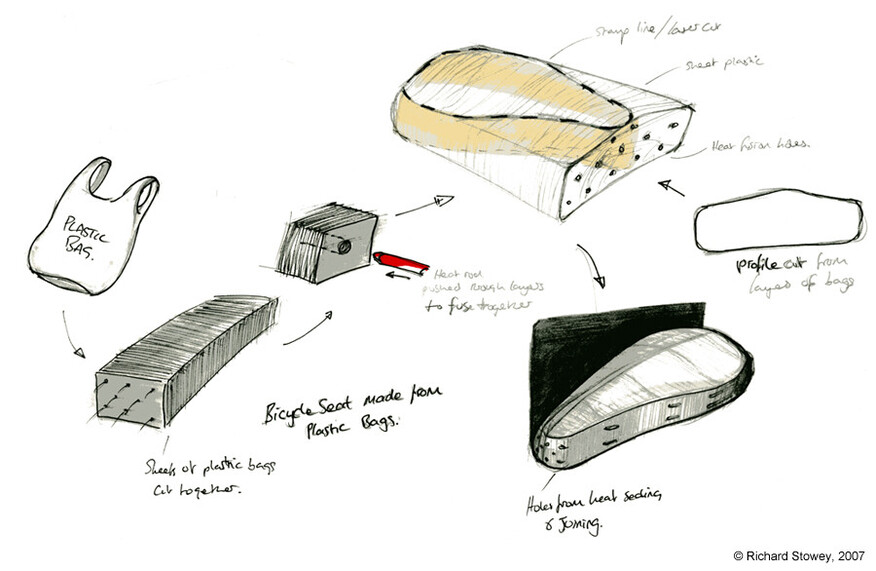 stamp line/laser cut
sheet plastic
Heat fusion holes.
PLASTIC
BAG.
Heat rod
pushed through layers
to fuse together
profile cut from
layers of bags
Bicycle Seat made from
Plastic Bags.
Sheets of plastic bags
cut together.
Holes from heat sealing
& Joining.
© Richard Stowey, 2007